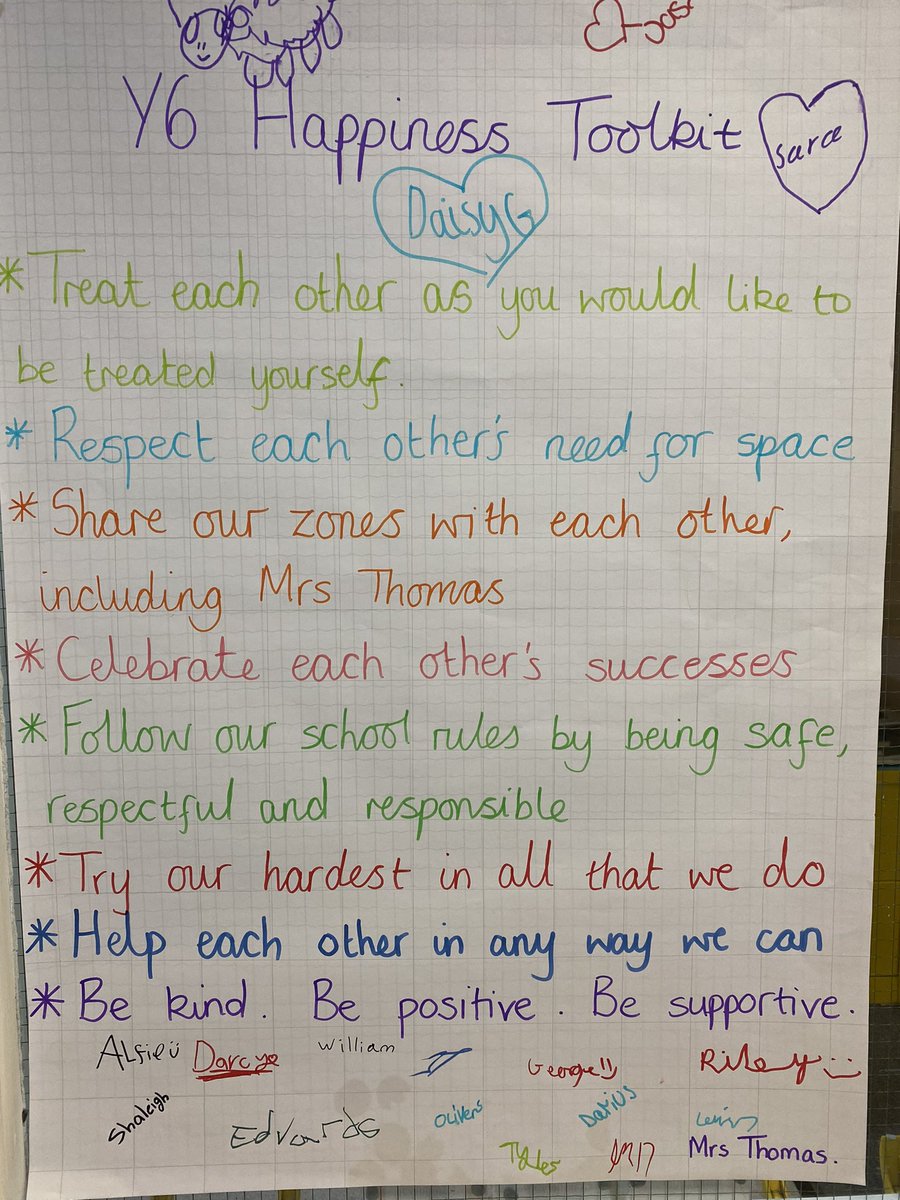 Y6 Happiness Toolkit
sara
DaisyG
* Treat each other as you would like to
be treated yourself.
* Respect each other's need for space
* Share our zones with each other,
including Mrs Thomas
* Celebrate each other's successes
* Follow our school rules by being safe,
respectful and responsible
* Try our hardest in all that we do
* Help each other in any way we can
* Be kind. Be positive. Be supportive.
Alfie Darcye William George!! Riley
Shaleigh Edwards Olivers Darius
Mrs Thomas.